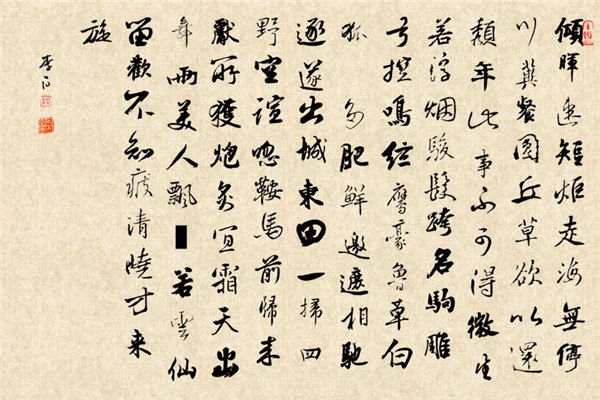 傾暉速短炬走海無停
川冀餐圓丘草欲以還
頹年此事不可得微生
若浮烟駿髮跨名駒雕
弓控鳴弦鷹豪魯草白
狐 多肥鮮邀遮相馳
逐遂出城東田一掃四
野空諠呼鞍馬前歸来
獻所獲炮炙宜霜天出
舞兩美人飄 若雲仙
留歡不知疲清曉方来
旋
李白